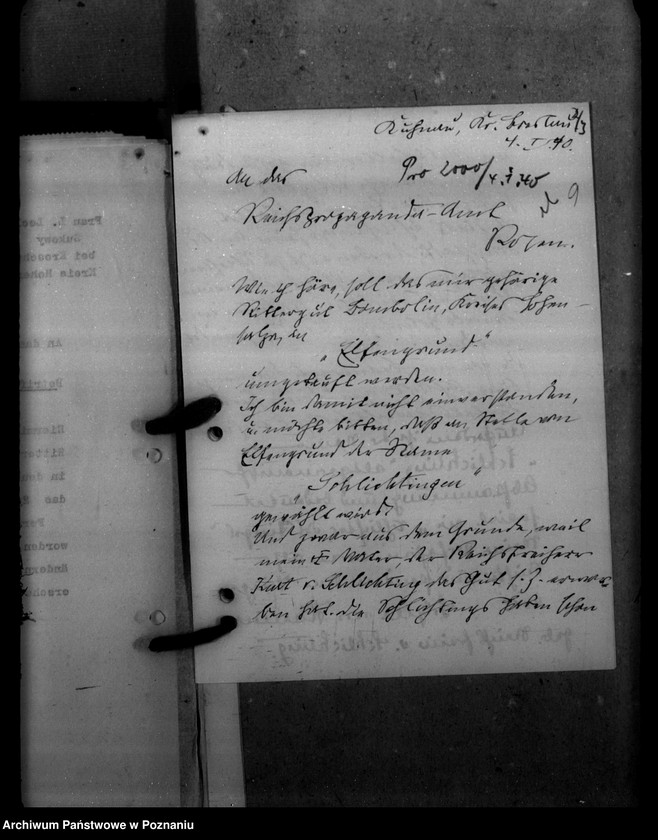 Kuhnau, Kr. Breslau
4. I. 40.
Pro 2000/
An das
9
Reichspropaganda-Amt
Posen.
Wie ich höre, soll das mir gehörige
Rittergut Dombolin, Kreises Hohen-
salza, in
„Elfengrund“
umgetauft werden.
Ich bin damit nicht einverstanden,
u. möchte bitten, daß an Stelle von
Elfengrund der Name
„Schlichtingen“
gewählt wird.
Und zwar aus dem Grunde, weil
mein Vater, der Reichsfreiherr
Kurt v. Schlichting das Gut s. Z. erwor-
ben hat. Die Schlichtings haben schon
Frau L.
Sukowy
bei
Kreis Hohen
in dem
in dem
das
worden
ändern
Archiwum Państwowe w Poznaniu